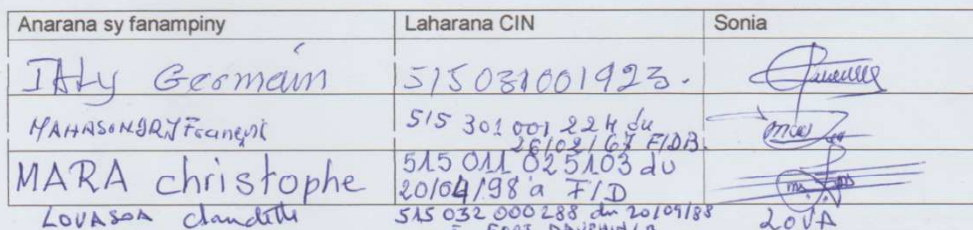 Anarana sy fanampiny Laharana CIN Sonia
ITALy Germain 515031001923.
MAHASONDRY François 515 301 001 224 du
26/02/67 F/DB.
MARA christophe 515 011 025103 du
20/04/98 a F/D
LOVASOA claudette 515 032 000 288 du 20/09/88 LOVA
FORT DAUPHIN